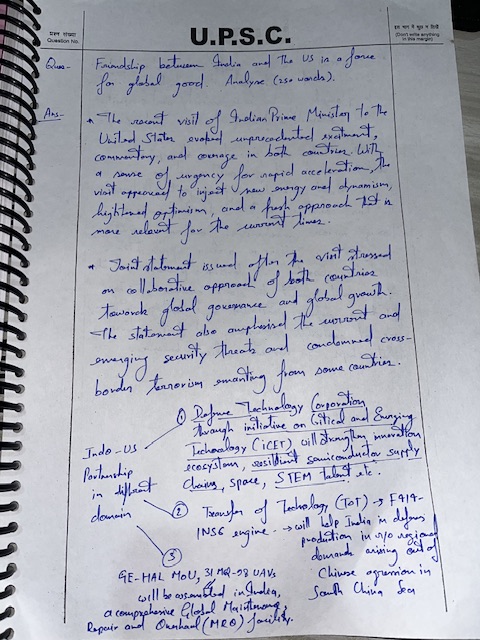 प्रश्न संख्या
Question No.
U.P.S.C.
इस भाग में कुछ न लिखें
(Don't write anything in this margin)
Ques- Friendship between India and the US is a force
for global good. Analyse (250 words).
Ans- * The recent visit of Indian Prime Minister to the
United States evoked unprecedented excitment,
commentary, and coverage in both countries. With
a sense of urgency for rapid acceleration, the
visit appeared to inject new energy and dynamism,
heightened optimism, and a fresh approach that is
more relevant for the current times.
* Joint statement issued after the visit stressed
on collaborative approach of both countries
towards global governance and global growth.
The statement also emphasised the current and
emerging security threats and condemned cross-
border terrorism emanting from some countries.
Indo-US
Partnership
in different
domain
① Defence Technology Corporation
through initiative on Critical and Emerging
Technology (iCET) will strengthen innovation
ecosystem, resilient semiconductor supply
chains, space, STEM talent etc.
② Transfer of Technology (ToT) → F414-
INS6 engine. → will help India in defence
production in r/o regional
demands arising out of
Chinese agression in
South China Sea
③
GE-HAL MoU, 31 MQ-9B UAVs
will be assembled in India,
a comprehensive Global Maintenance
Repair and Overhaul (MRO) facility.